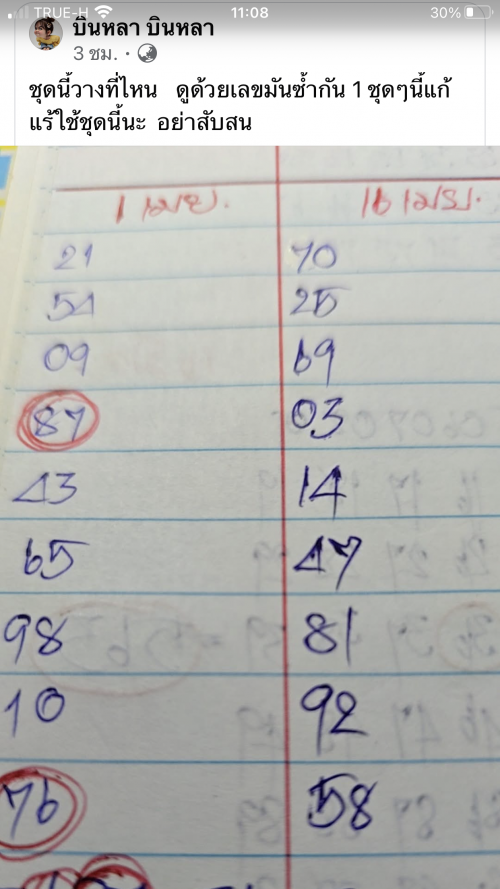 TRUE-H 11:08 30%
บินหลา บินหลา
3 ชม.
ชุดนี้วางที่ไหน ดูด้วยเลขมันซ้ำกัน 1 ชุดๆนี้แก้
แร้ใช้ชุดนี้นะ อย่าสับสน
1 เมย. 16 เมย.
21 70
54 25
09 69
87 03
43 14
65 47
98 81
10 92
76 58